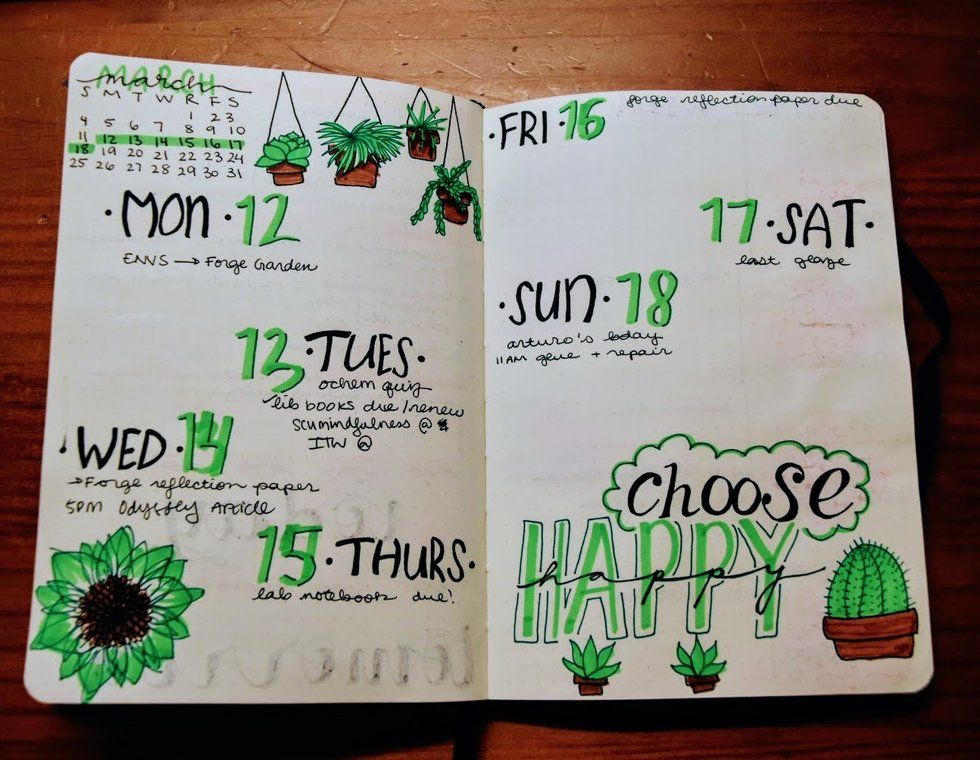 MARCH
march
S M T W R F S
1 2 3
4 5 6 7 8 9 10
11 12 13 14 15 16 17
18 19 20 21 22 23 24
25 26 27 28 29 30 31
·MON·12
ENVS → Forge Garden
13·TUES·
ochem quiz
lib books due/renew
scumindfulness @
ITW @
·WED·14
→Forge reflection paper
5PM Odyssey Article
15·THURS·
lab notebook due!
·FRI·16
forge reflection paper due
17·SAT·
last glaze
·SUN·18
arturo's bday
11AM + repair
choose
HAPPY
happy